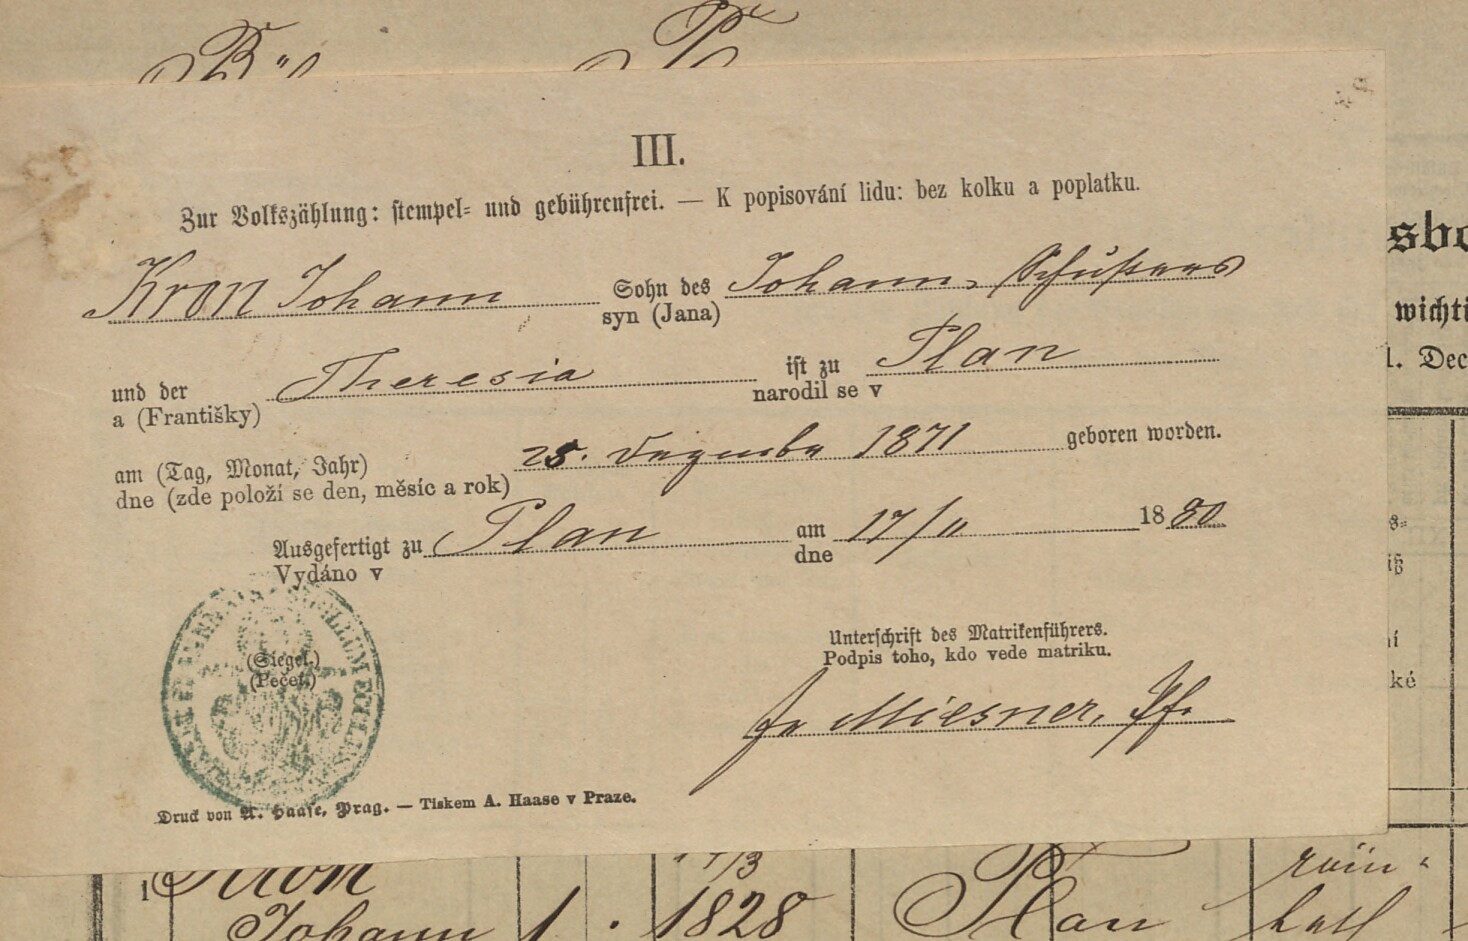 III.
Zur Volkszählung: stempel- und gebührenfrei. — K popisování lidu: bez kolku a poplatku.
Kron Johann Sohn des Johann, Schusters
syn (Jana)
und der Theresia ist zu Plan
a (Františky) narodil se v
am (Tag, Monat, Jahr) 25. Dezember 1871 geboren worden.
dne (zde položí se den, měsíc a rok)
Ausgefertigt zu Plan am 17/11 1880
Vydáno v dne
SIGILLUM
(Siegel.)
(Pečeť.)
Unterschrift des Matrikenführers.
Podpis toho, kdo vede matriku.
Miesner, Pf.
Druck von A. Haase, Prag. — Tiskem A. Haase v Praze.
sbo
wichti
1. Dec
s-
iß
í
ké
1 Kron 17/3 röm-
Johann 1 . 1828 Plan kath